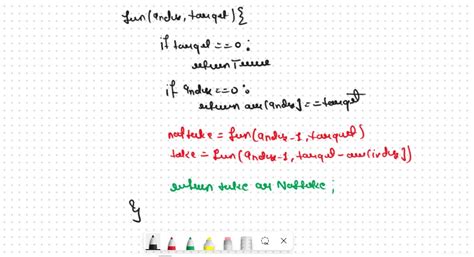 fun(index, target){
if target==0:
return True
if index==0:
return arr[index]==target
nottake = fun(index-1, target)
take = fun(index-1, target-arr[index])
return take or Nottake;
}